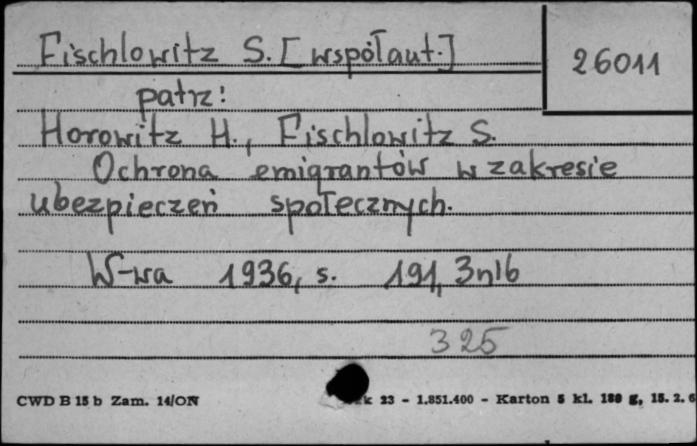 Fischlowitz S. [współaut.]
26011
patrz:
Horowitz H., Fischlowitz S.
Ochrona emigrantów w zakresie
ubezpieczeń społecznych.
W-wa 1936, s. 191, 3nlb
325
CWD B 15 b Zam. 14/ON
23 - 1.851.400 - Karton 5 kl. 180 g, 15. 2. 6